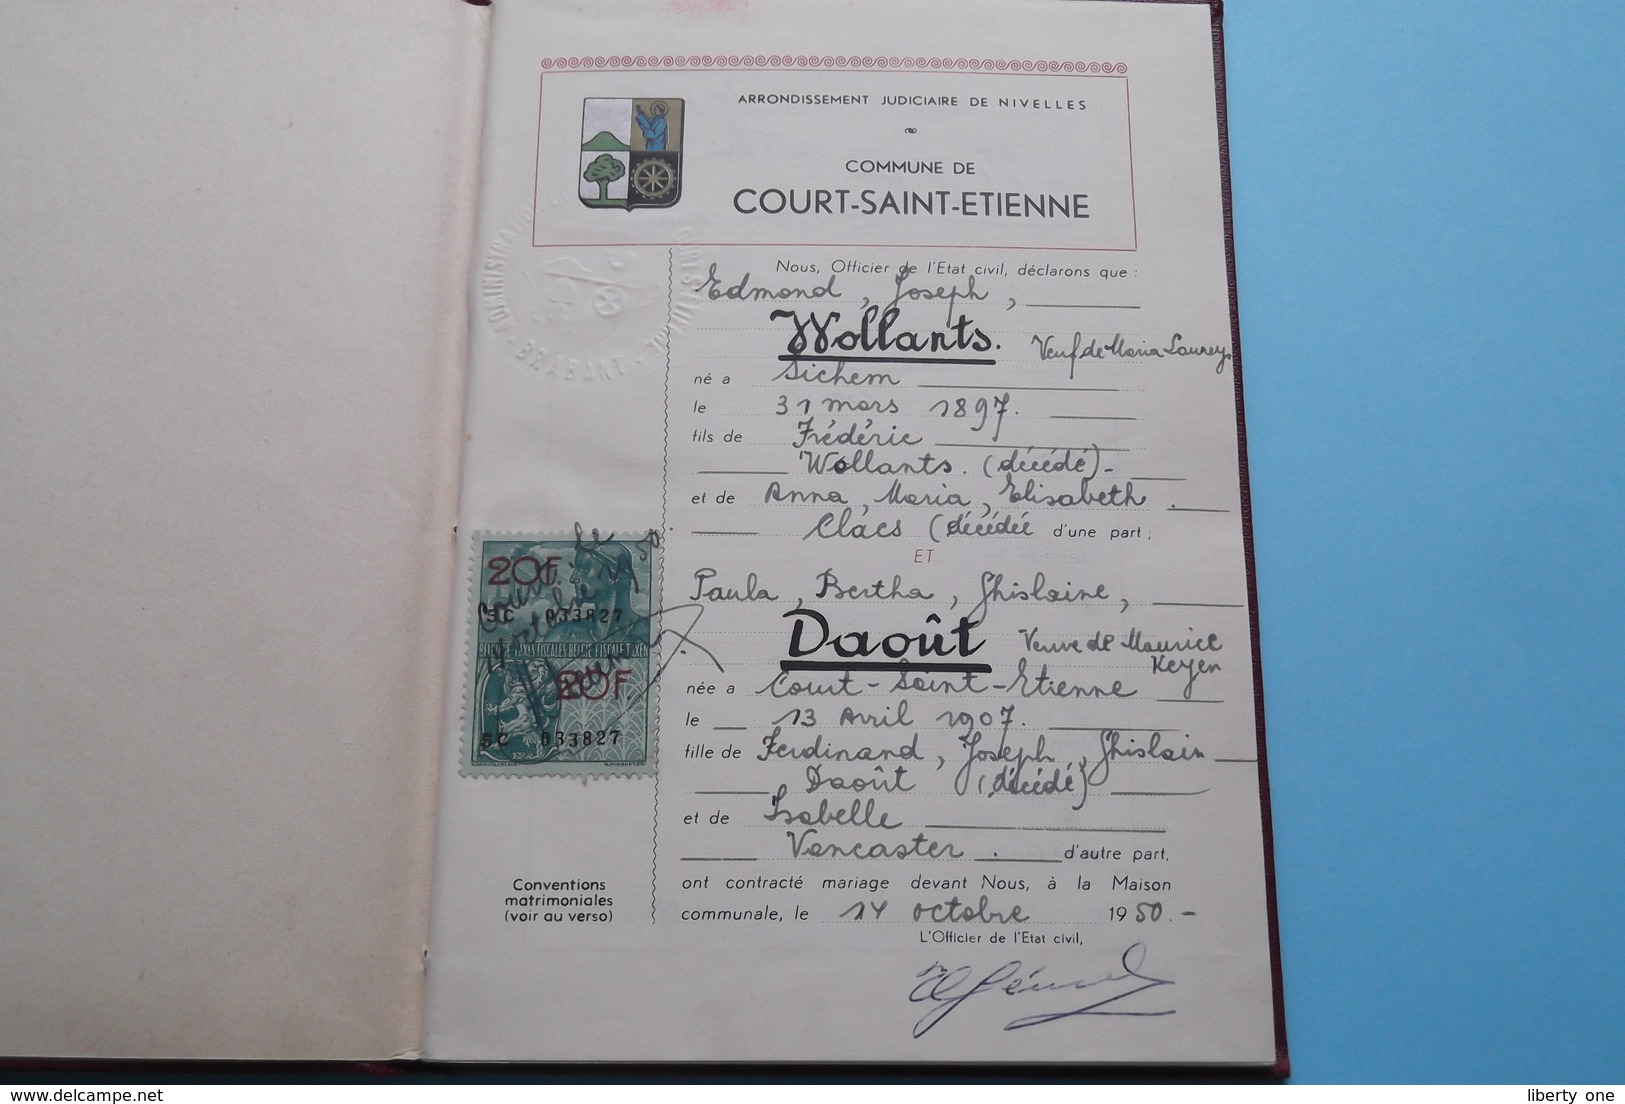 ARRONDISSEMENT JUDICIAIRE DE NIVELLES
COMMUNE DE
COURT-SAINT-ETIENNE
ADMINISTRATION
BRABANT
Nous, Officier de l'Etat civil, déclarons que :
Edmond, Joseph,
Wollants. Veuf de Maria Laureys
né a Sichem
le 31 mars 1897.
fils de Frédéric
Wollants. (décédé)-
et de Anna, Maria, Elisabeth
Claes (décédée d'une part ;
ET
Paula, Bertha, Ghislaine,
Daoût Veuve de Maurice
Keyen
née a Court-Saint-Etienne
le 13 Avril 1907.
fille de Ferdinand, Joseph, Ghislain
Daoût (décédé)
et de Isabelle
Vancaster. d'autre part,
ont contracté mariage devant Nous, à la Maison
communale, le 14 octobre 1950.-
L'Officier de l'Etat civil,
Conventions
matrimoniales
(voir au verso)
20F
5C 033827
20F
5C 033827
liberty one